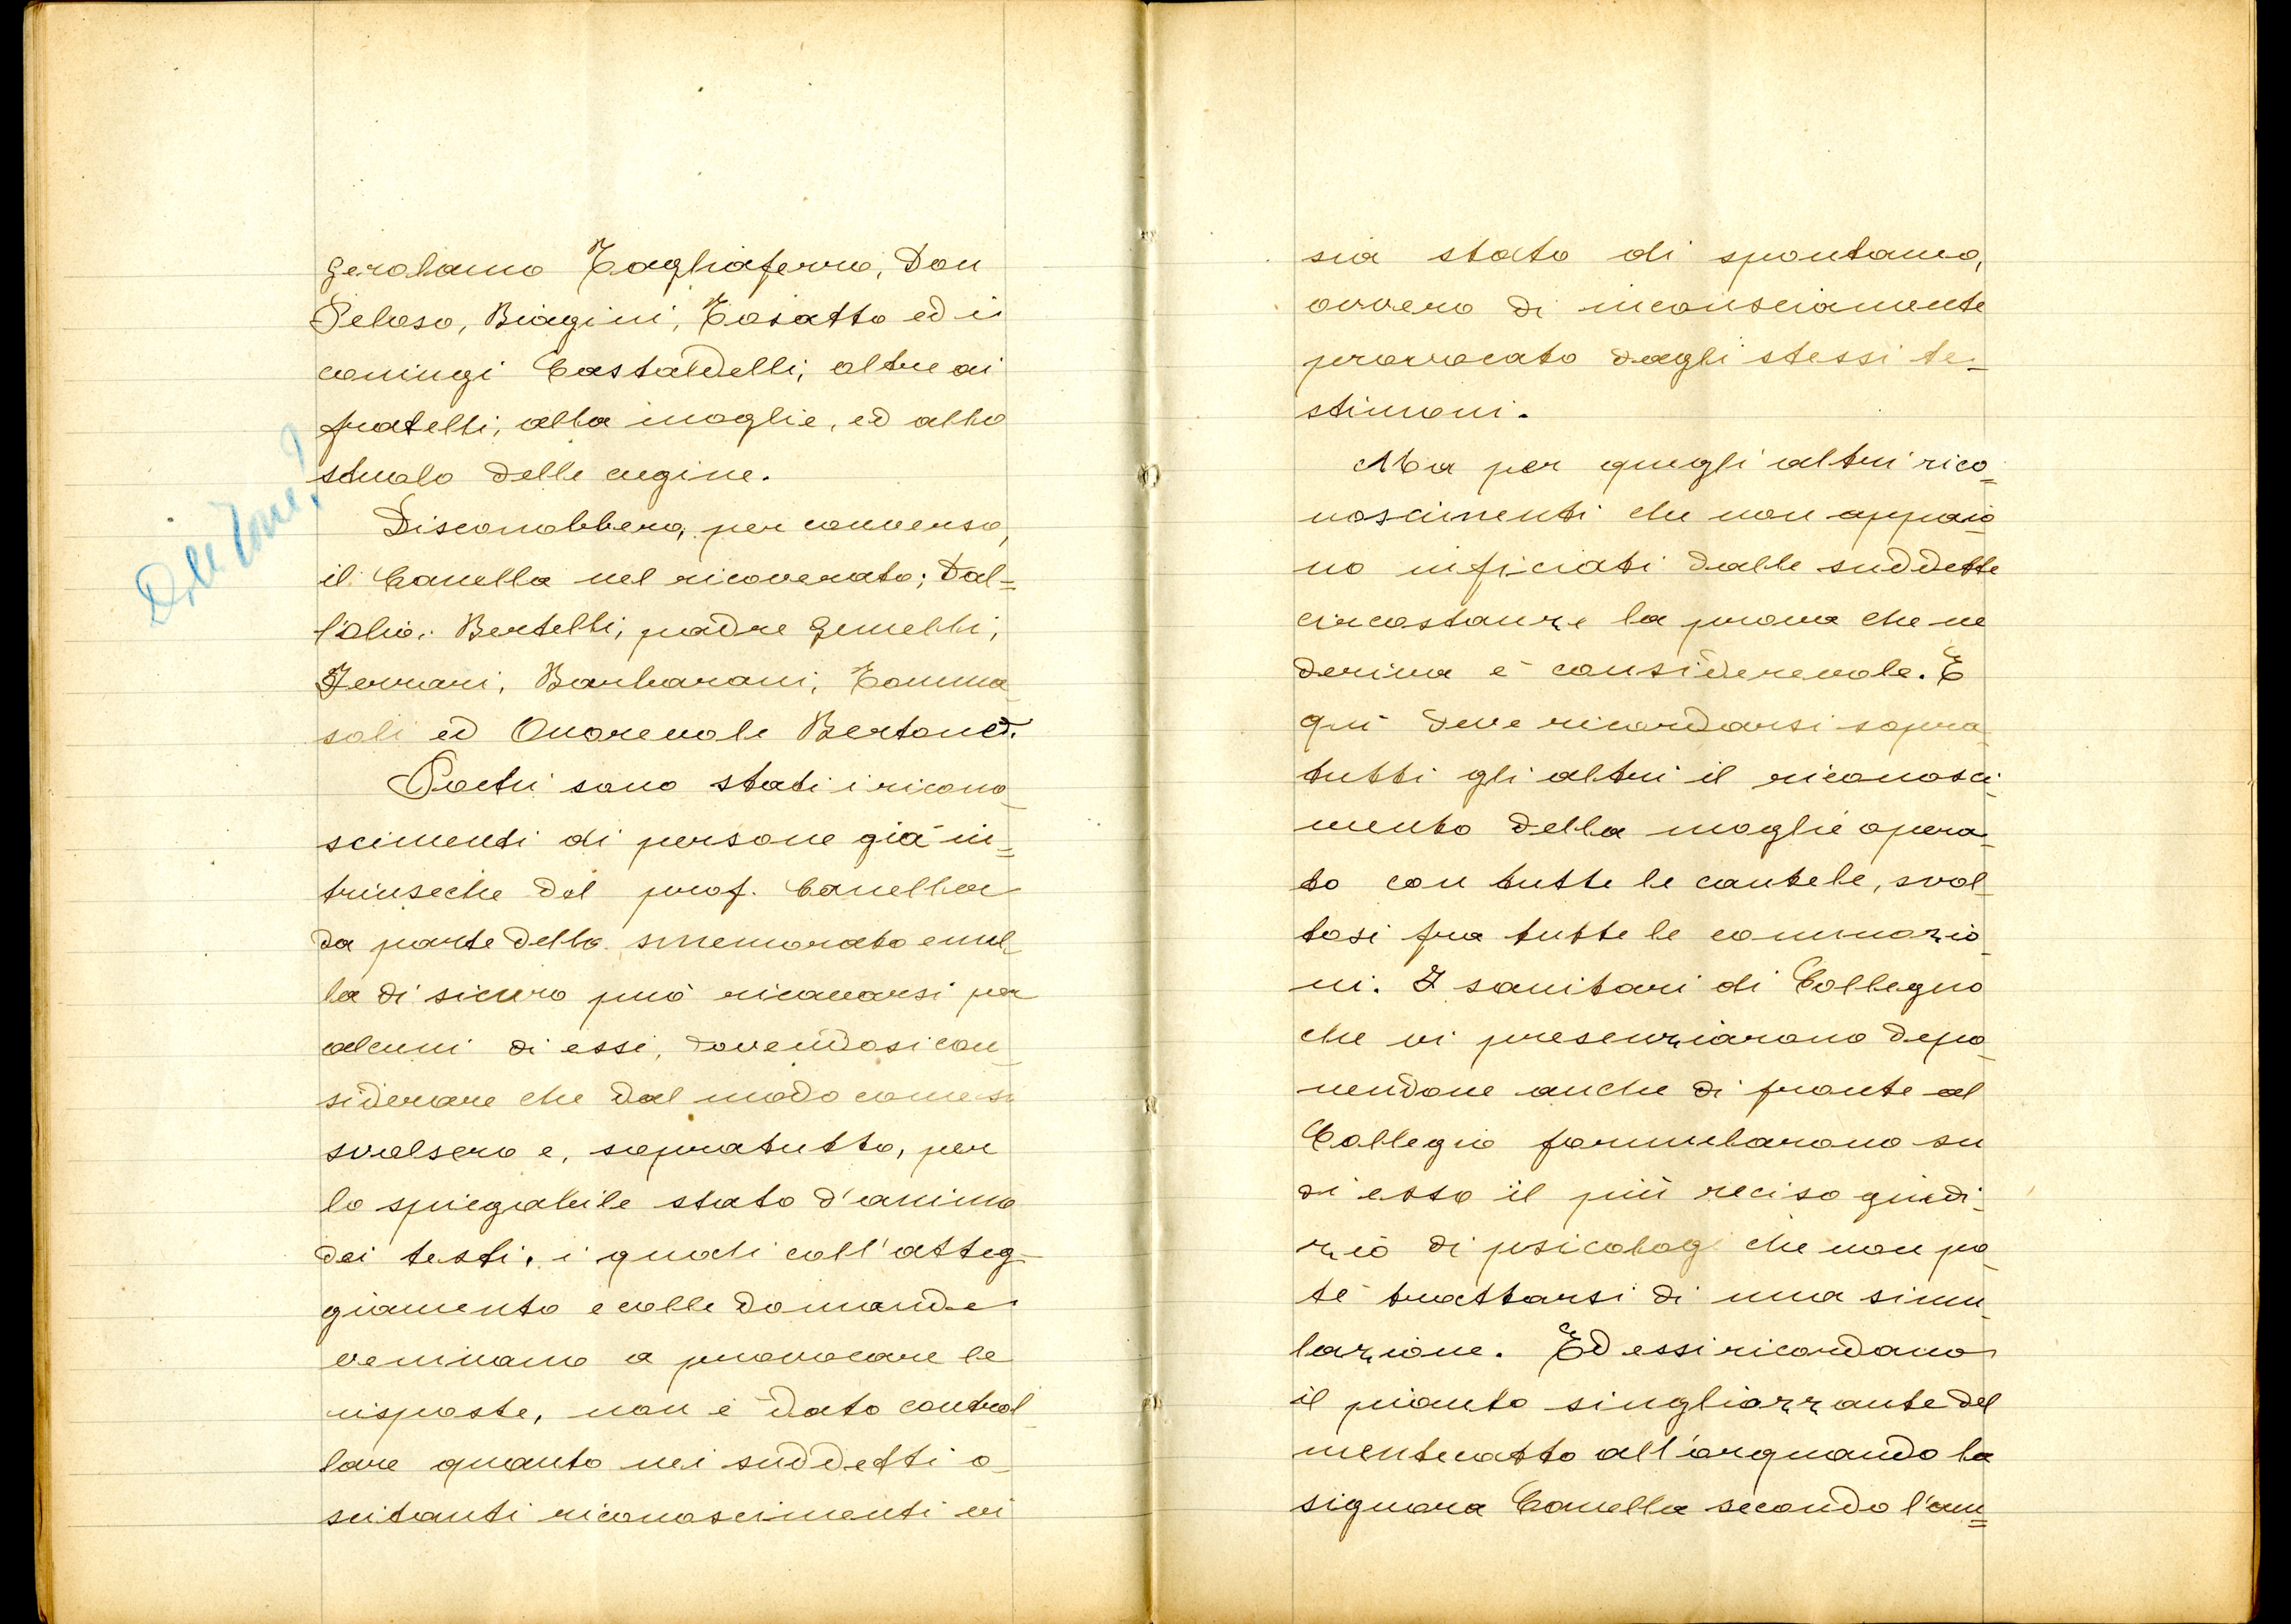 Gerolamo Tagliaferro, Don
Peloso, Biagini, Tosatto ed i
coniugi Castaldelli; oltre ai
fratelli, alla moglie, ed allo
stuolo delle cugine.
Disconobbero, per converso,
il Canella nel ricoverato; Dal=
l'Olio, Bertelli, padre Gemelli,
Ferrari, Barbarani, Tomma
soli ed Onorevole Bertone.
Pochi sono stati i ricono_
scimenti di persone già in=
trinseche del prof. Canella
da parte dello smemorato e nul_
la di sicuro può ricavarsi per
alcuni di essi, dovendosi con_
siderare che dal modo come si
svolsero e, sopratutto, per
lo spiegabile stato d'animo
dei testi, i quali coll'atteg_
giamento e colle domande
venivano a provocare le
risposte, non è dato control_
lare quanto nei suddetti o_
scitanti riconoscimenti vi
sia stato di spontaneo,
ovvero di inconsciamente
provocato dagli stessi te_
stimoni.
Ma per quegli altri rico_
noscimenti che non appaio_
no inficiati dalle suddette
circostanze la prova che ne
deriva è considerevole. E
quì deve ricordarsi sopra_
tutti gli altri il riconosci_
mento della moglie opera_
to con tutte le cautele, svol_
tosi fra tutte le commozio_
ni. I sanitari di Collegno
che vi presenziarono depo_
nendone anche di fronte al
Collegio formularono su
di esso il più reciso giudi_
zio di psicolog che non po_
tè trattarsi di una simu_
lazione. Ed essi ricordano
il pianto singhiozzante del
mentecatto allorquando la
signora Canella secondo l'am=